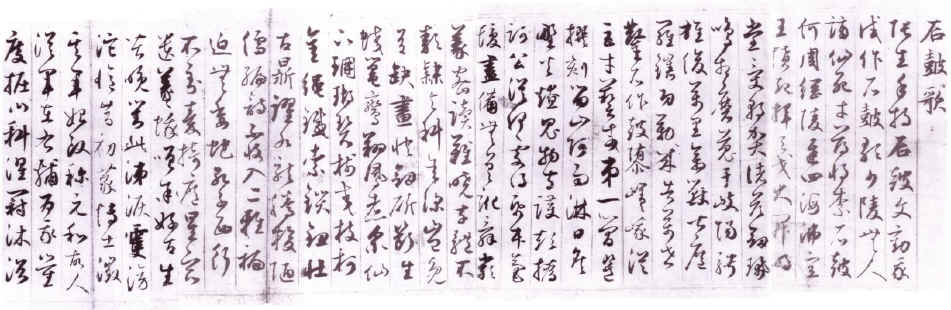 石鼓歌
張生手持石鼓文勸我
試作石鼓歌少陵無人
謫仙死才薄將奈石鼓
何周綱陵遲四海沸宣
王憤起揮天戈大開明
堂受朝賀諸侯劍珮
鳴相磨蒐于岐陽騁
雄俊萬里禽獸皆遮
羅鐫功勒成告萬世
鑿石作鼓隳嵯峨從
臣才藝咸第一簡選
撰刻留山阿雨淋日炙
野火燎鬼物守護煩撝
訶公從何處得紙本毫
髮盡備無差訛辭嚴
義密讀難曉字體不
類隸與科年深豈免
有缺畫快劍斫斷生
蛟鼉鸞翔鳳翥衆仙
下珊瑚碧樹交枝柯
金繩鐵索鎖鈕壯
古鼎躍水龍騰梭陋
儒編詩不收入二雅褊
迫無委蛇孔子西行
不到秦掎摭星宿
遺羲娥嗟余好古生
苦晚對此涕淚雙滂
沱憶昔初蒙博士徵
其年始改稱元和故人
從軍在右輔為我量
度掘臼科濯冠沐浴